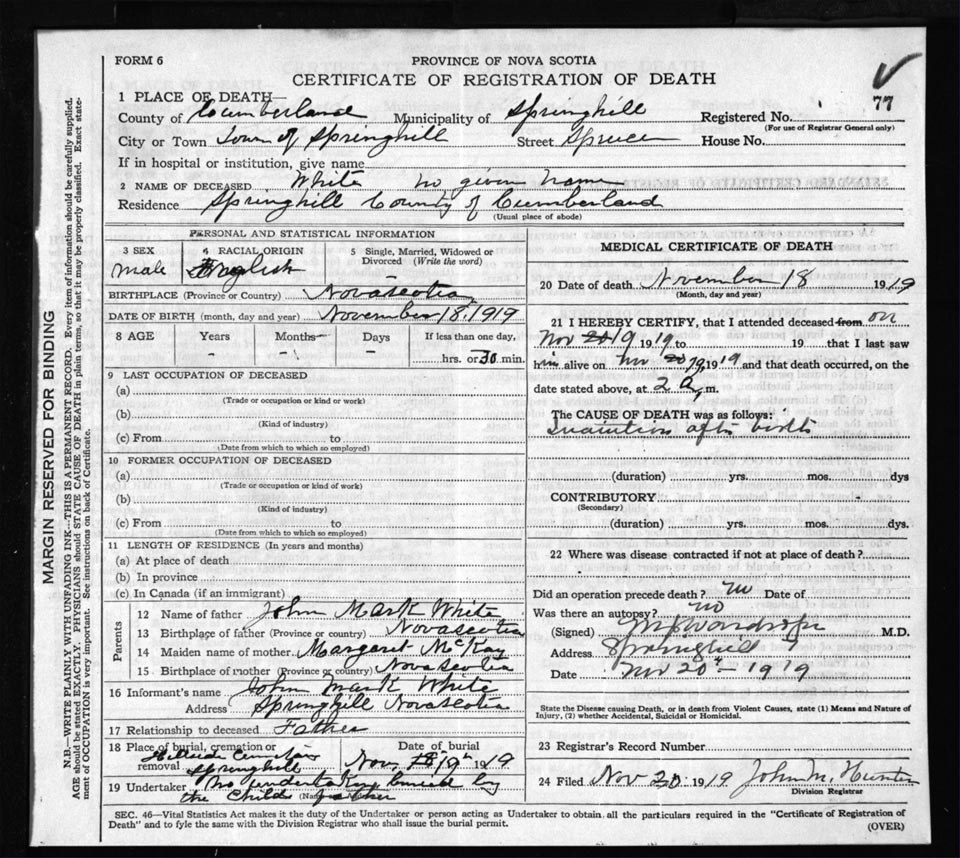 FORM 6
PROVINCE OF NOVA SCOTIA
CERTIFICATE OF REGISTRATION OF DEATH
77
1 PLACE OF DEATH—
County of Cumberland Municipality of Springhill Registered No.
(For use of Registrar General only)
City or Town Town of Springhill Street Spruce House No.
If in hospital or institution, give name
2 NAME OF DECEASED White no given name
Residence Springhill County of Cumberland
(Usual place of abode)
PERSONAL AND STATISTICAL INFORMATION
3 SEX 4 RACIAL ORIGIN 5 Single, Married, Widowed or
Divorced (Write the word)
male English -
BIRTHPLACE (Province or Country) Novascotia
DATE OF BIRTH (month, day and year) November 18, 1919
8 AGE Years Months Days If less than one day,
- - - hrs. or 30 min.
9 LAST OCCUPATION OF DECEASED
(a)
(Trade or occupation or kind or work)
(b)
(Kind of industry)
(c) From to
(Date from which to which so employed)
10 FORMER OCCUPATION OF DECEASED
(a)
(Trade or occupation or kind of work)
(b)
(Kind of industry)
(c) From to
(Date from which to which so employed)
11 LENGTH OF RESIDENCE (In years and months)
(a) At place of death
(b) In province
(c) In Canada (if an immigrant)
Parents
12 Name of father John Mark White
13 Birthplace of father (Province or country) Novascotia
14 Maiden name of mother Margaret McKay
15 Birthplace of mother (Province or country) Novascotia
16 Informant's name John Mark White
Address Springhill Novascotia
17 Relationship to deceased Father
18 Place of burial, cremation or Date of burial
Hillside
removal Springhill Nov, 19 1919
19 Undertaker No buried by
the Childs father
(Name)
MEDICAL CERTIFICATE OF DEATH
20 Date of death November 18 1919
(Month, day and year)
21 I HEREBY CERTIFY, that I attended deceased from on
Nov 20 19 1919 to 19 that I last saw
him alive on Nov 20 19, 1919 and that death occurred, on the
date stated above, at 2 a m.
The CAUSE OF DEATH was as follows:
Inanition after birth
(duration) yrs. mos. dys
CONTRIBUTORY
(Secondary)
(duration) yrs. mos. dys.
22 Where was disease contracted if not at place of death?
Did an operation precede death? no Date of
Was there an autopsy? no
(Signed) M.D.
Address Springhill
Date Nov 20th 1919
State the Disease causing Death, or in death from Violent Causes, state (1) Means and Nature of
Injury, (2) whether Accidental, Suicidal or Homicidal.
23 Registrar's Record Number
24 Filed Nov 20 1919 John M. Hunter
Division Registrar
SEC. 46—Vital Statistics Act makes it the duty of the Undertaker or person acting as Undertaker to obtain all the particulars required in the "Certificate of Registration of
Death" and to fyle the same with the Division Registrar who shall issue the burial permit. (OVER)
MARGIN RESERVED FOR BINDING
N.B.—WRITE PLAINLY WITH UNFADING INK—THIS IS A PERMANENT RECORD. Every item of information should be carefully supplied.
AGE should be stated EXACTLY. PHYSICIANS should STATE CAUSE OF DEATH in plain terms, so that it may be properly classified. Exact state-
ment of OCCUPATION is very important. See instructions on back of Certificate.